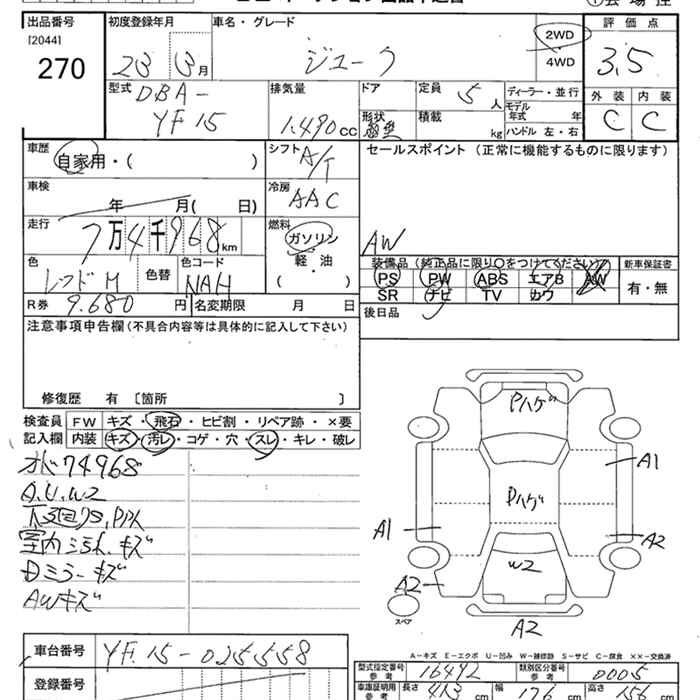 出品番号 初度登録年月 車名・グレード 2WD 評価点
[2044] 4WD
270 23 3月 ジューク 3.5
型式 排気量 ドア 定員 5人 ディーラー・並行 外装 内装
DBA- モデル年式 年
YF15 1.490cc 形状 積載 kg ハンドル 左・右 C C
車歴 シフト A/T セールスポイント (正常に機能するものに限ります)
自家用・( )
車検 冷房
年 月( 日) AAC
走行 7万4千968km 燃料
ガソリン AW
軽・油
( )
色 色替 色コード 装備品(純正品に限り○をつけてください) 新車保証書
レッドM NAH PS PW ABS エアB AW 有・無
R券 9.680円 名変期限 月 日 SR ナビ TV カワ
注意事項申告欄(不具合内容等は具体的に記入して下さい) 後日品
修復歴 有 〔箇所 〕
検査員 FW キズ・飛石・ヒビ割・リペア跡・×要
記入欄 内装 キズ・汚レ・コゲ・穴・スレ・キレ・破レ
74968
A.U.W2
室内 キズ
Dミラーキズ
AWキズ
Pハゲ
A1
Pハゲ
A1
A2
W2
A2
スペア
A2
車台番号 YF15-025558
登録番号
A-キズ E-エクボ U-凹み W-補修跡 S-サビ C-腐食 ××-交換済
型式指定番号 参考 16492 類別区分番号 参考 0005
車庫証明用 参考 長さ 413cm 幅 176cm 高さ 156cm